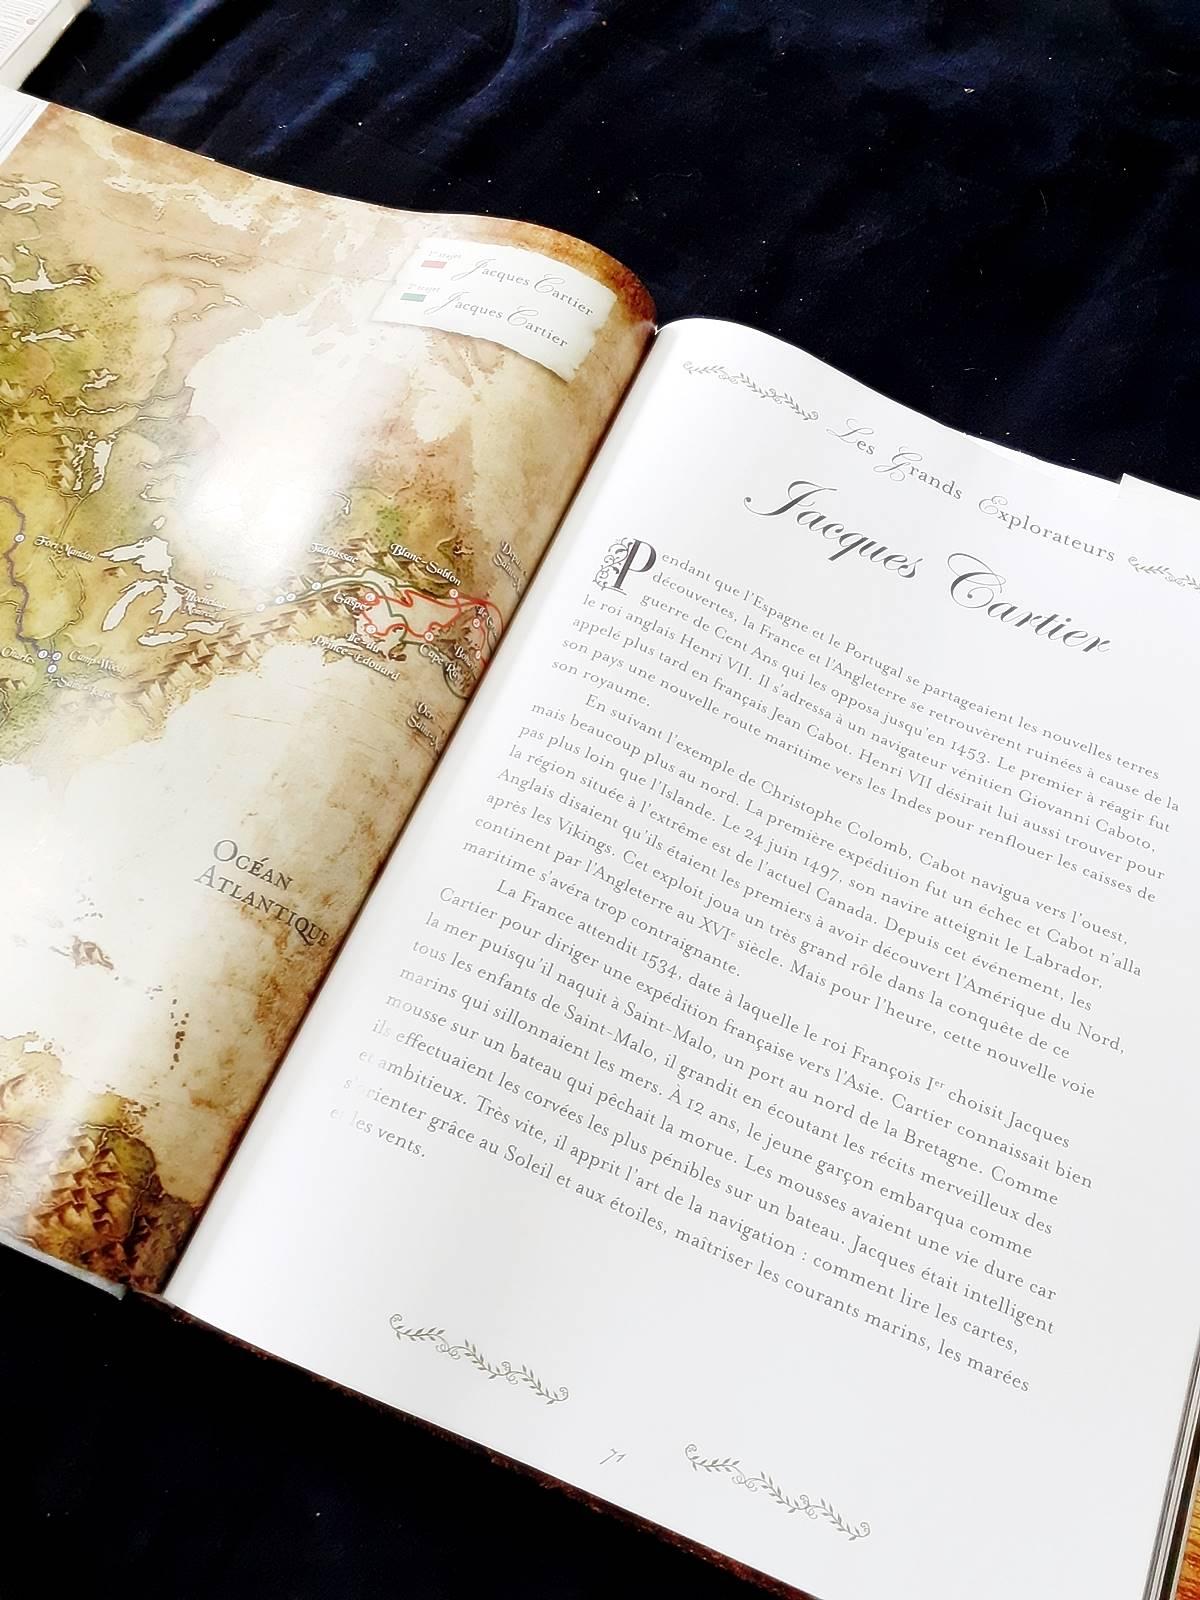 1er trajet
Jacques Cartier
2e trajet
Jacques Cartier
Fort Mandan
Tadoussac
Blanc-Sablon
Gaspé
Îles du
Prince-Édouard
Camp Wood
Saint-Louis
Océan
Atlantique
Les Grands Explorateurs
Jacques Cartier
Pendant que l'Espagne et le Portugal se partageaient les nouvelles terres
découvertes, la France et l'Angleterre se retrouvèrent ruinées à cause de la
guerre de Cent Ans qui les opposa jusqu'en 1453. Le premier à réagir fut
le roi anglais Henri VII. Il s'adressa à un navigateur vénitien Giovanni Caboto,
appelé plus tard en français Jean Cabot. Henri VII désirait lui aussi trouver pour
son pays une nouvelle route maritime vers les Indes pour renflouer les caisses de
son royaume.
En suivant l'exemple de Christophe Colomb, Cabot navigua vers l'ouest,
mais beaucoup plus au nord. La première expédition fut un échec et Cabot n'alla
pas plus loin que l'Islande. Le 24 juin 1497, son navire atteignit le Labrador,
la région située à l'extrême est de l'actuel Canada. Depuis cet événement, les
Anglais disaient qu'ils étaient les premiers à avoir découvert l'Amérique du Nord,
après les Vikings. Cet exploit joua un très grand rôle dans la conquête de ce
continent par l'Angleterre au XVIe siècle. Mais pour l'heure, cette nouvelle voie
maritime s'avéra trop contraignante.
La France attendit 1534, date à laquelle le roi François Ier choisit Jacques
Cartier pour diriger une expédition française vers l'Asie. Cartier connaissait bien
la mer puisqu'il naquit à Saint-Malo, un port au nord de la Bretagne. Comme
tous les enfants de Saint-Malo, il grandit en écoutant les récits merveilleux des
marins qui sillonnaient les mers. À 12 ans, le jeune garçon embarqua comme
mousse sur un bateau qui pêchait la morue. Les mousses avaient une vie dure car
ils effectuaient les corvées les plus pénibles sur un bateau. Jacques était intelligent
et ambitieux. Très vite, il apprit l'art de la navigation : comment lire les cartes,
s'orienter grâce au Soleil et aux étoiles, maîtriser les courants marins, les marées
et les vents.
71